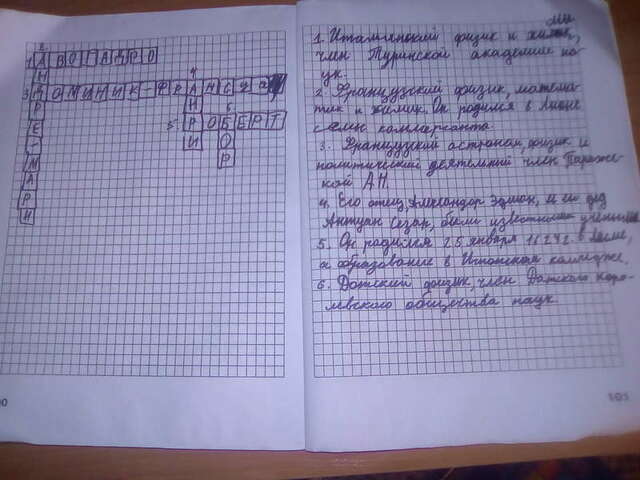 1 АВОГАДРО
2 АНДРЕ-МАРИ
3 ДОМИНИК-ФРАНСУА
4 АНРИ
5 РОБЕРТ
6 БОР
1 Итальянский физик и химик,
член Туринской академии на-
ук.
2. Французский физик, матема-
тик и химик. Он родился в Лионе
в семье коммерсанта.
3. Французский астроном, физик и
политический деятель член Париж-
ской АН.
4. Его отец, Александр Эдмон, и его дед
Антуан Сезар, были известными учеными
5. Он родился 25 января 1627г. в
а образование в Итонском колледже.
6. Датский физик, член Датского коро-
левского общества наук
101